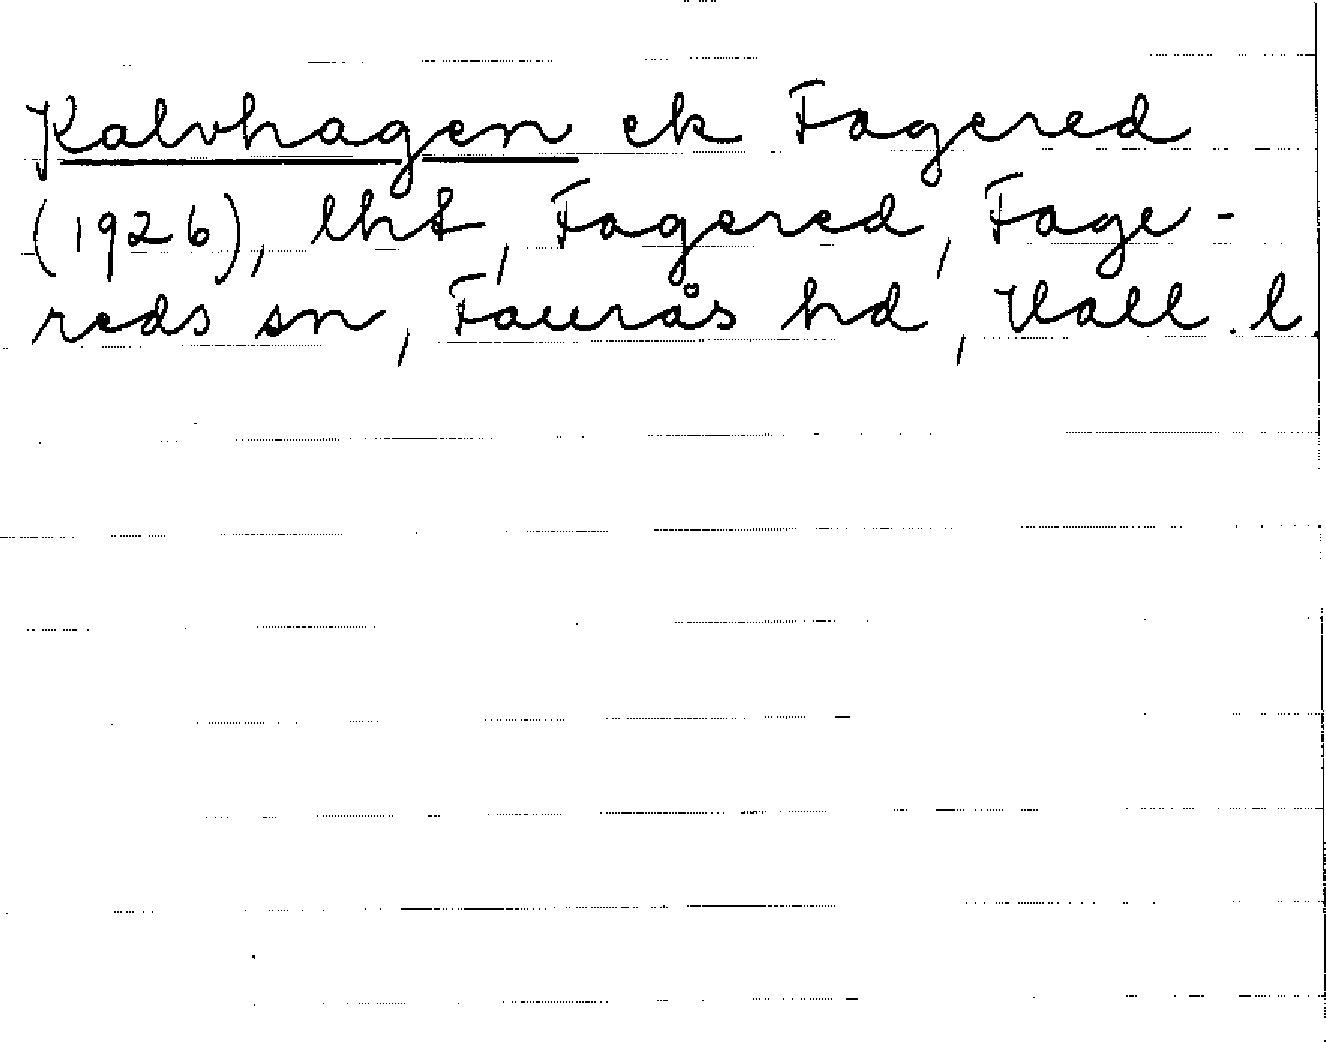 Kalvhagen ek Fagered
(1926), lht, Fagered, Fage-
reds sn, Faurås hd, Hall. l.